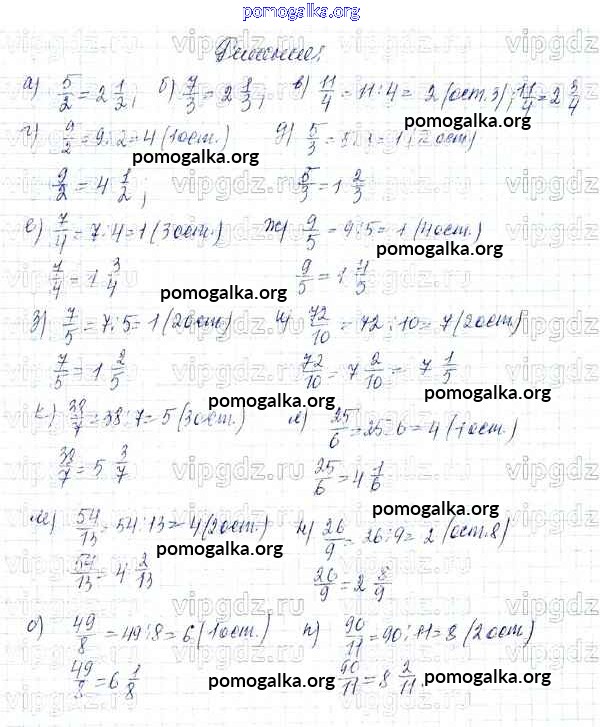 pomogalka.org
Решение.
а) 5/2 = 2 1/2; б) 7/3 = 2 1/3; в) 11/4 = 11:4 = 2 (ост.3); 11/4 = 2 3/4
г) 9/2 = 9:2 = 4 (1 ост.) д) 5/3 = 5:3 = 1 (2 ост)
pomogalka.org pomogalka.org
9/2 = 4 1/2; 5/3 = 1 2/3
е) 7/4 = 7:4 = 1 (3 ост.) ж) 9/5 = 9:5 = 1 (4 ост.)
pomogalka.org
7/4 = 1 3/4 9/5 = 1 4/5
pomogalka.org
з) 7/5 = 7:5 = 1 (2 ост.) и) 72/10 = 72:10 = 7 (2 ост.)
7/5 = 1 2/5 72/10 = 7 2/10 = 7 1/5
pomogalka.org pomogalka.org
к) 38/7 = 38:7 = 5 (3 ост.) л) 25/6 = 25:6 = 4 (1 ост.)
38/7 = 5 3/7 25/6 = 4 1/6
pomogalka.org
м) 54/13 = 54:13 = 4 (2 ост.) н) 26/9 = 26:9 = 2 (ост.8)
pomogalka.org pomogalka.org
54/13 = 4 2/13 26/9 = 2 8/9
о) 49/8 = 49:8 = 6 (1 ост.) п) 90/11 = 90:11 = 8 (2 ост)
49/8 = 6 1/8 90/11 = 8 2/11
pomogalka.org pomogalka.org
vipgdz.ru